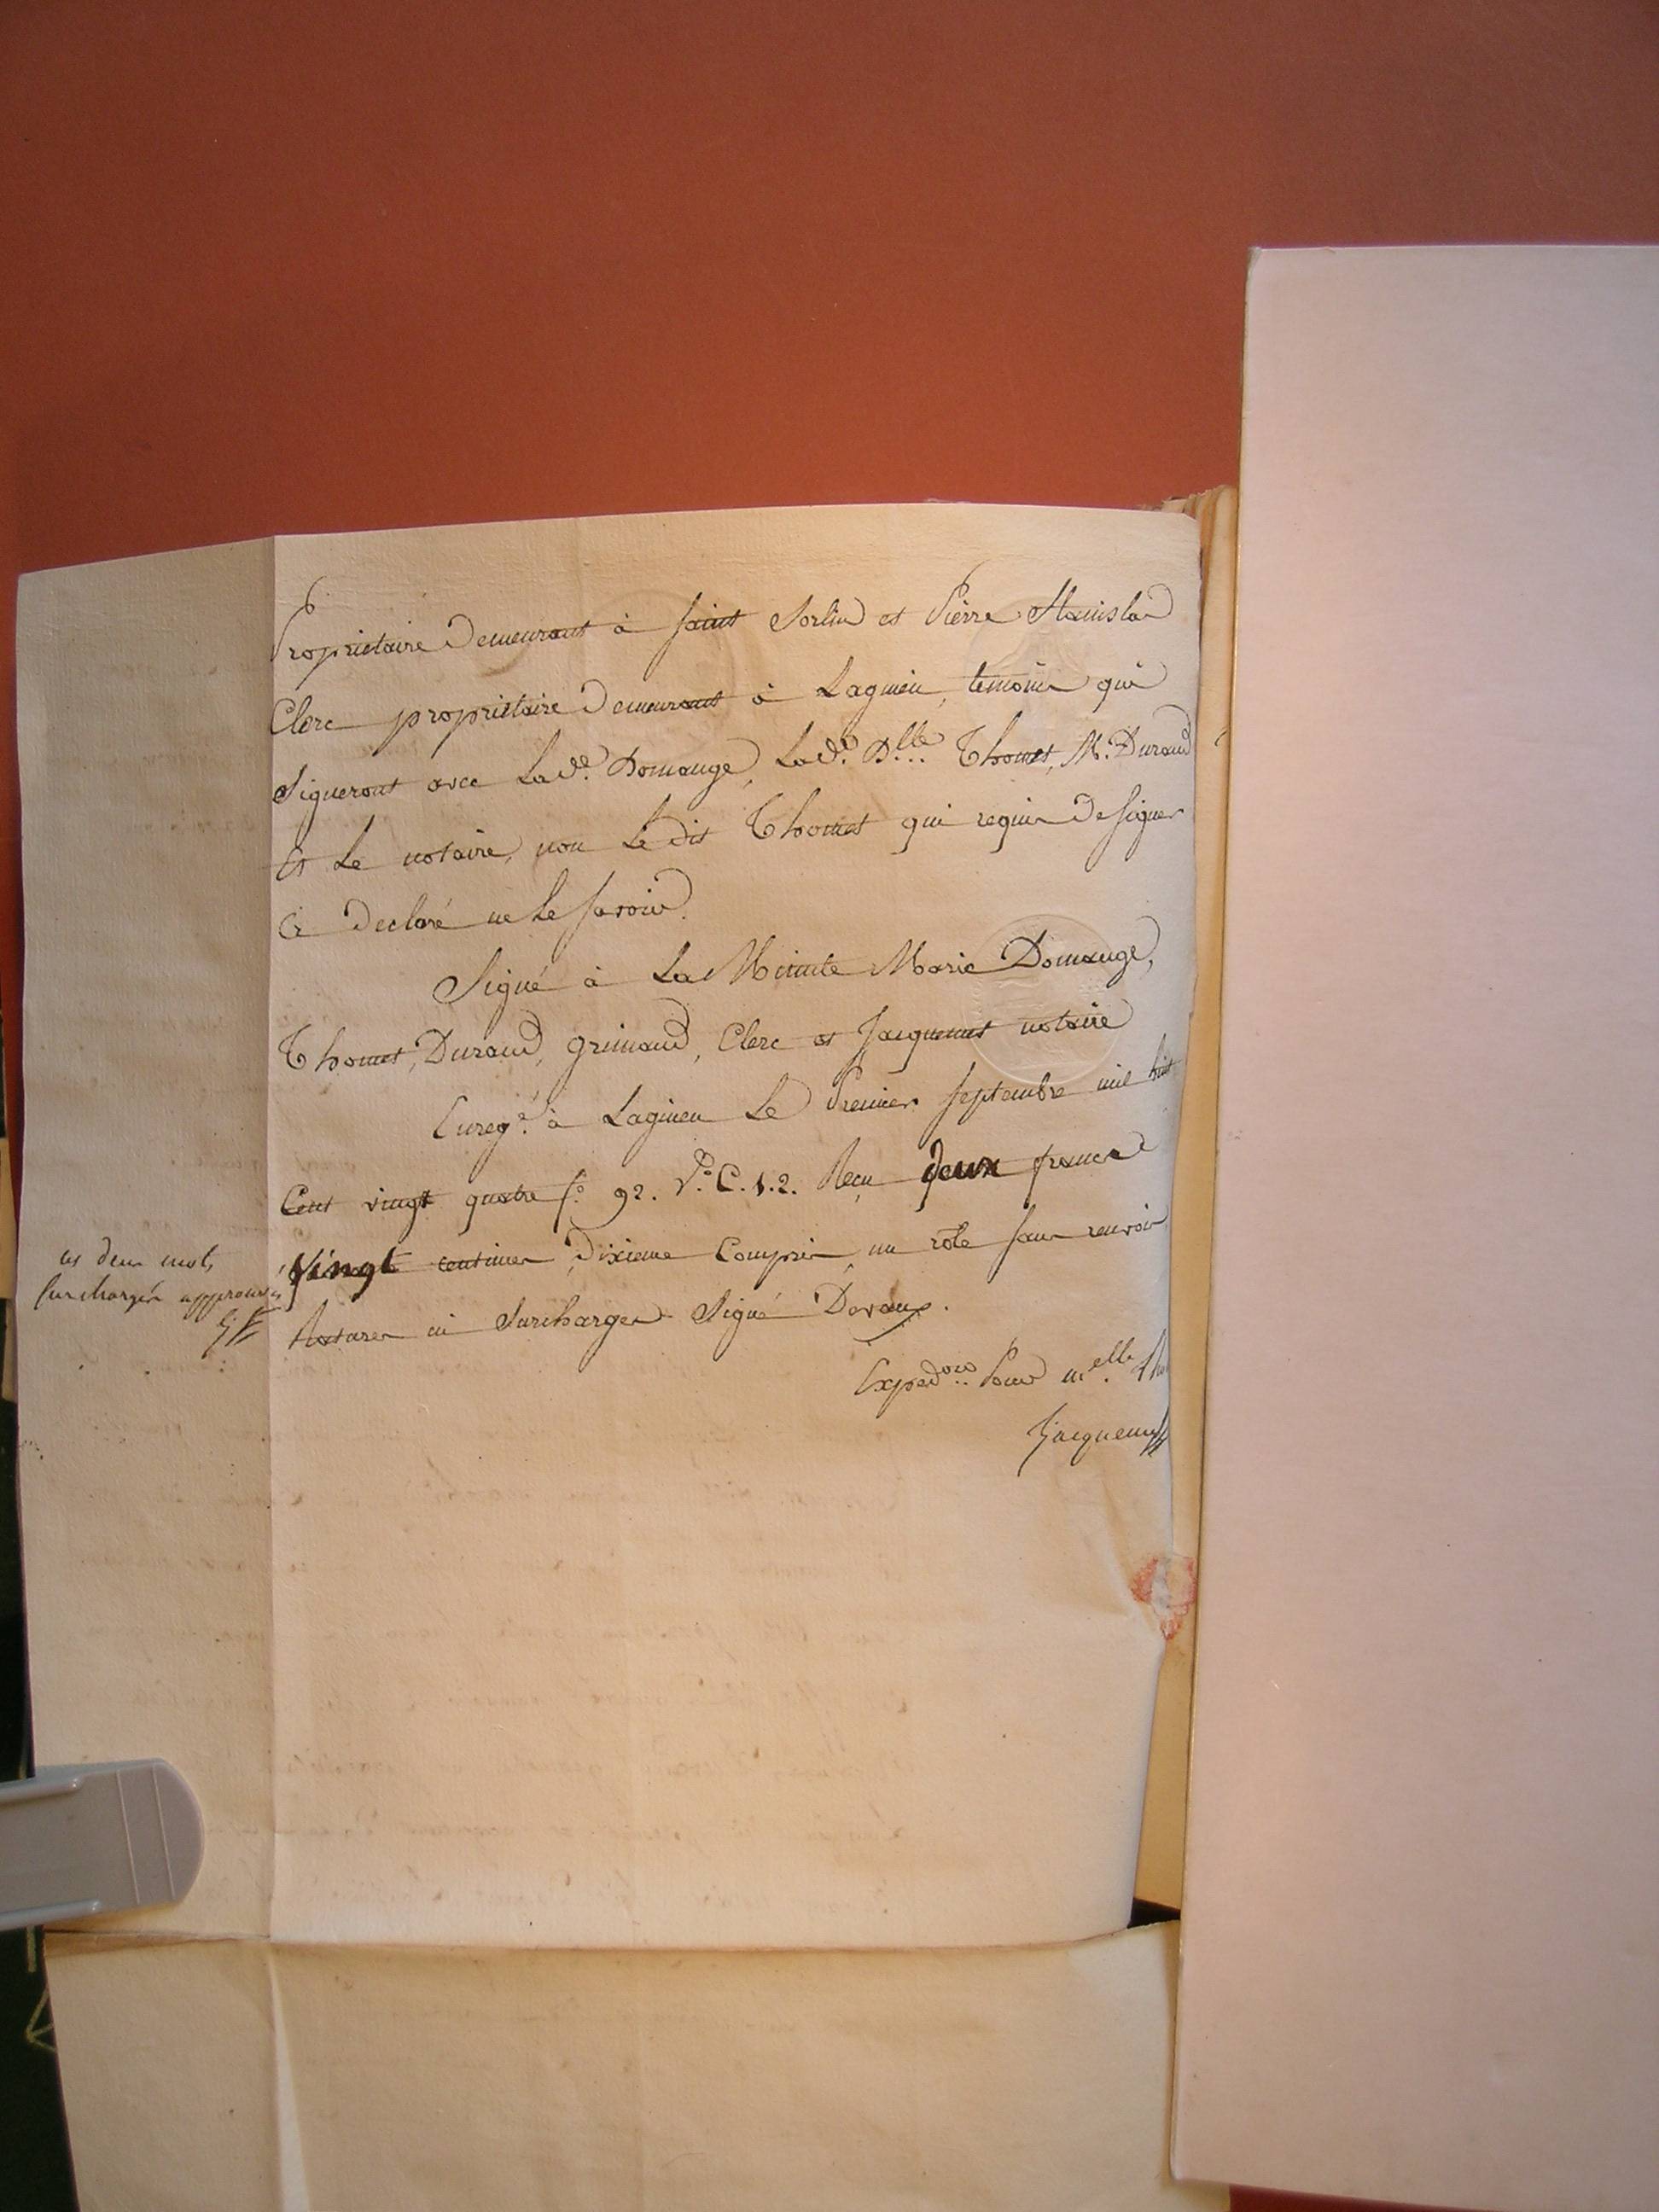 Proprietaire Demeurant à Saint Sorlin et Pierre Stanislas
Clerc proprietaire Demeurant à Lagnieu, temoins qui
Signeront avec Lad.e Domange, Lad.e D.lle Thomet, M. Durand
Et Le notaire, non Le dit Thomet qui requis De Signer
a Declaré ne Le Savoir.
Signé à La Minute Marie Domange,
Thomet, Durand, Grimand, Clerc et Jacquemet notaire
Enreg.é à Lagnieu Le Premier Septembre mil huit
Cent vingt quatre f.o 92. V.o C. 1. 2. Reçu deux francs
vingt centimes, Dixieme Compris, un rôle sans renvois
ces deux mots
surchargés approuvés
Ratures ni Surcharges Signé Devaux.
Exped.on Pour m.elle
Jacquemet